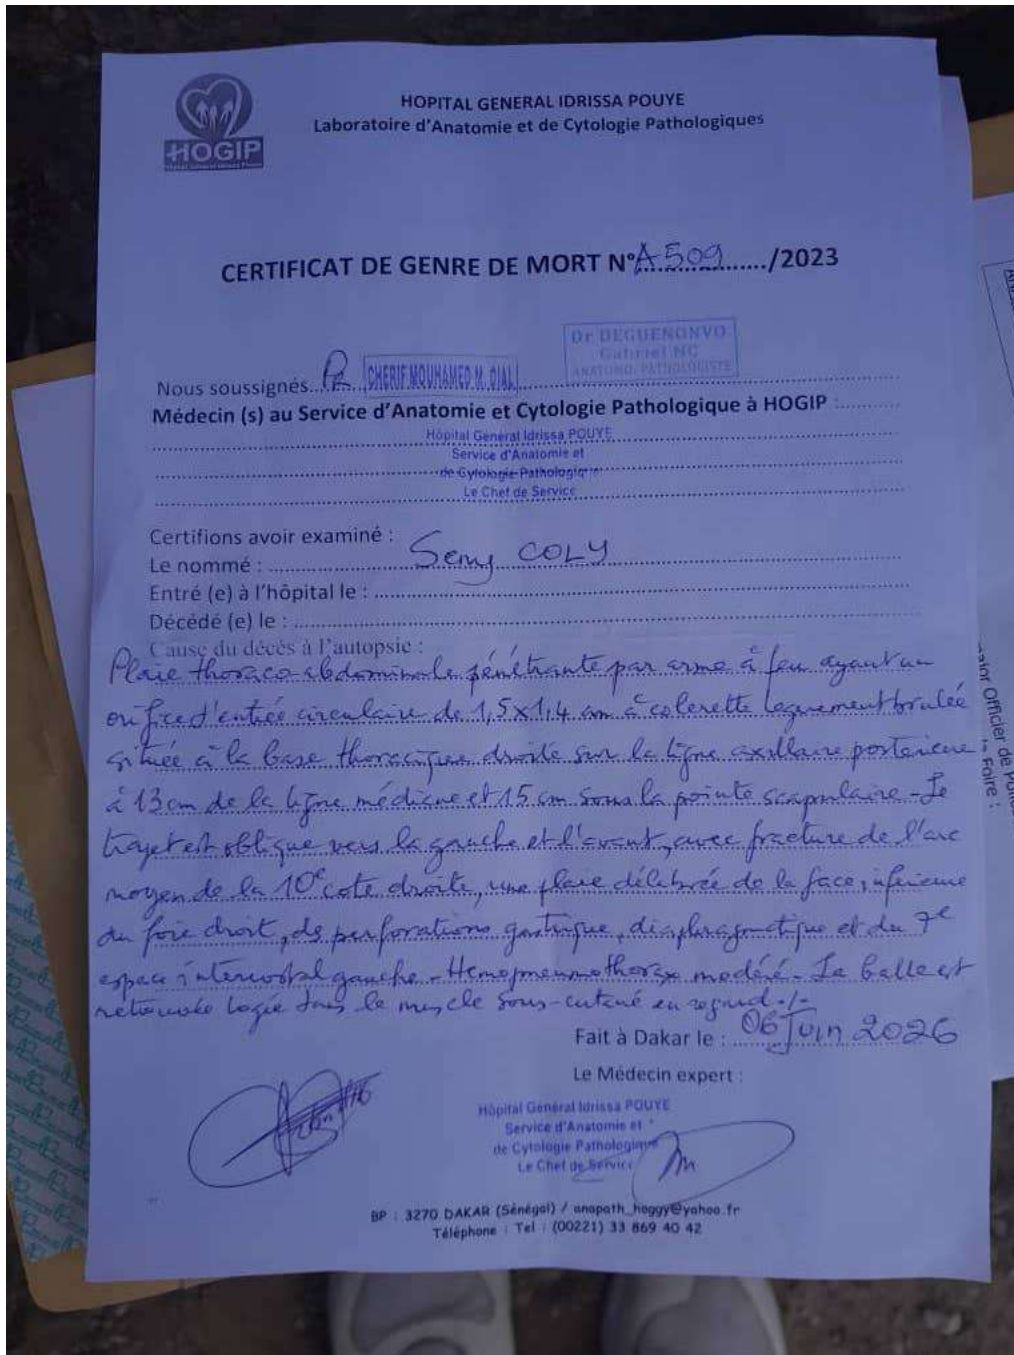 HOPITAL GENERAL IDRISSA POUYE
Laboratoire d'Anatomie et de Cytologie Pathologiques
HOGIP
Hôpital Général Idrissa Pouye
CERTIFICAT DE GENRE DE MORT N° A 509 ............/2023
Dr DEGUENONVO
Gabriel NC
ANATOMO-PATHOLOGISTE
Nous soussignés Pr CHERIF MOUHAMED M. DIAL
Médecin (s) au Service d'Anatomie et Cytologie Pathologique à HOGIP :
Hôpital Général Idrissa POUYE
Service d'Anatomie et
de Cytologie Pathologique
Le Chef de Service
Certifions avoir examiné :
Le nommé : Seny COLY
Entré (e) à l'hôpital le :
Décédé (e) le :
Cause du décès à l'autopsie :
Plaie thoraco-abdominale pénétrante par arme à feu ayant un
orifice d'entrée circulaire de 1,5x1,4 cm à colerette legerement brulée
située à la base thoracique droite sur la ligne axillaire posterieure
à 13 cm de la ligne médiane et 15 cm sous la pointe scapulaire - Le
trajet est oblique vers la gauche et l'avant, avec fracture de l'arc
moyen de la 10e cote droite, une plaie délabrée de la face inferieure
du foie droit, ds perforations gastrique, diaphragmatique et du 7e
espace intercostal gauche - Hemopneumothorax modéré - La balle est
retrouvée logée dans le muscle sous-cutané en regard ./-
Fait à Dakar le : 06 Juin 2026
Le Médecin expert :
Hôpital Général Idrissa POUYE
Service d'Anatomie et
de Cytologie Pathologique
Le Chef de Service
BP : 3270 DAKAR (Sénégal) / anapath_hoggy@yahoo.fr
Téléphone : Tel : (00221) 33 869 40 42
Officier de
Foire :